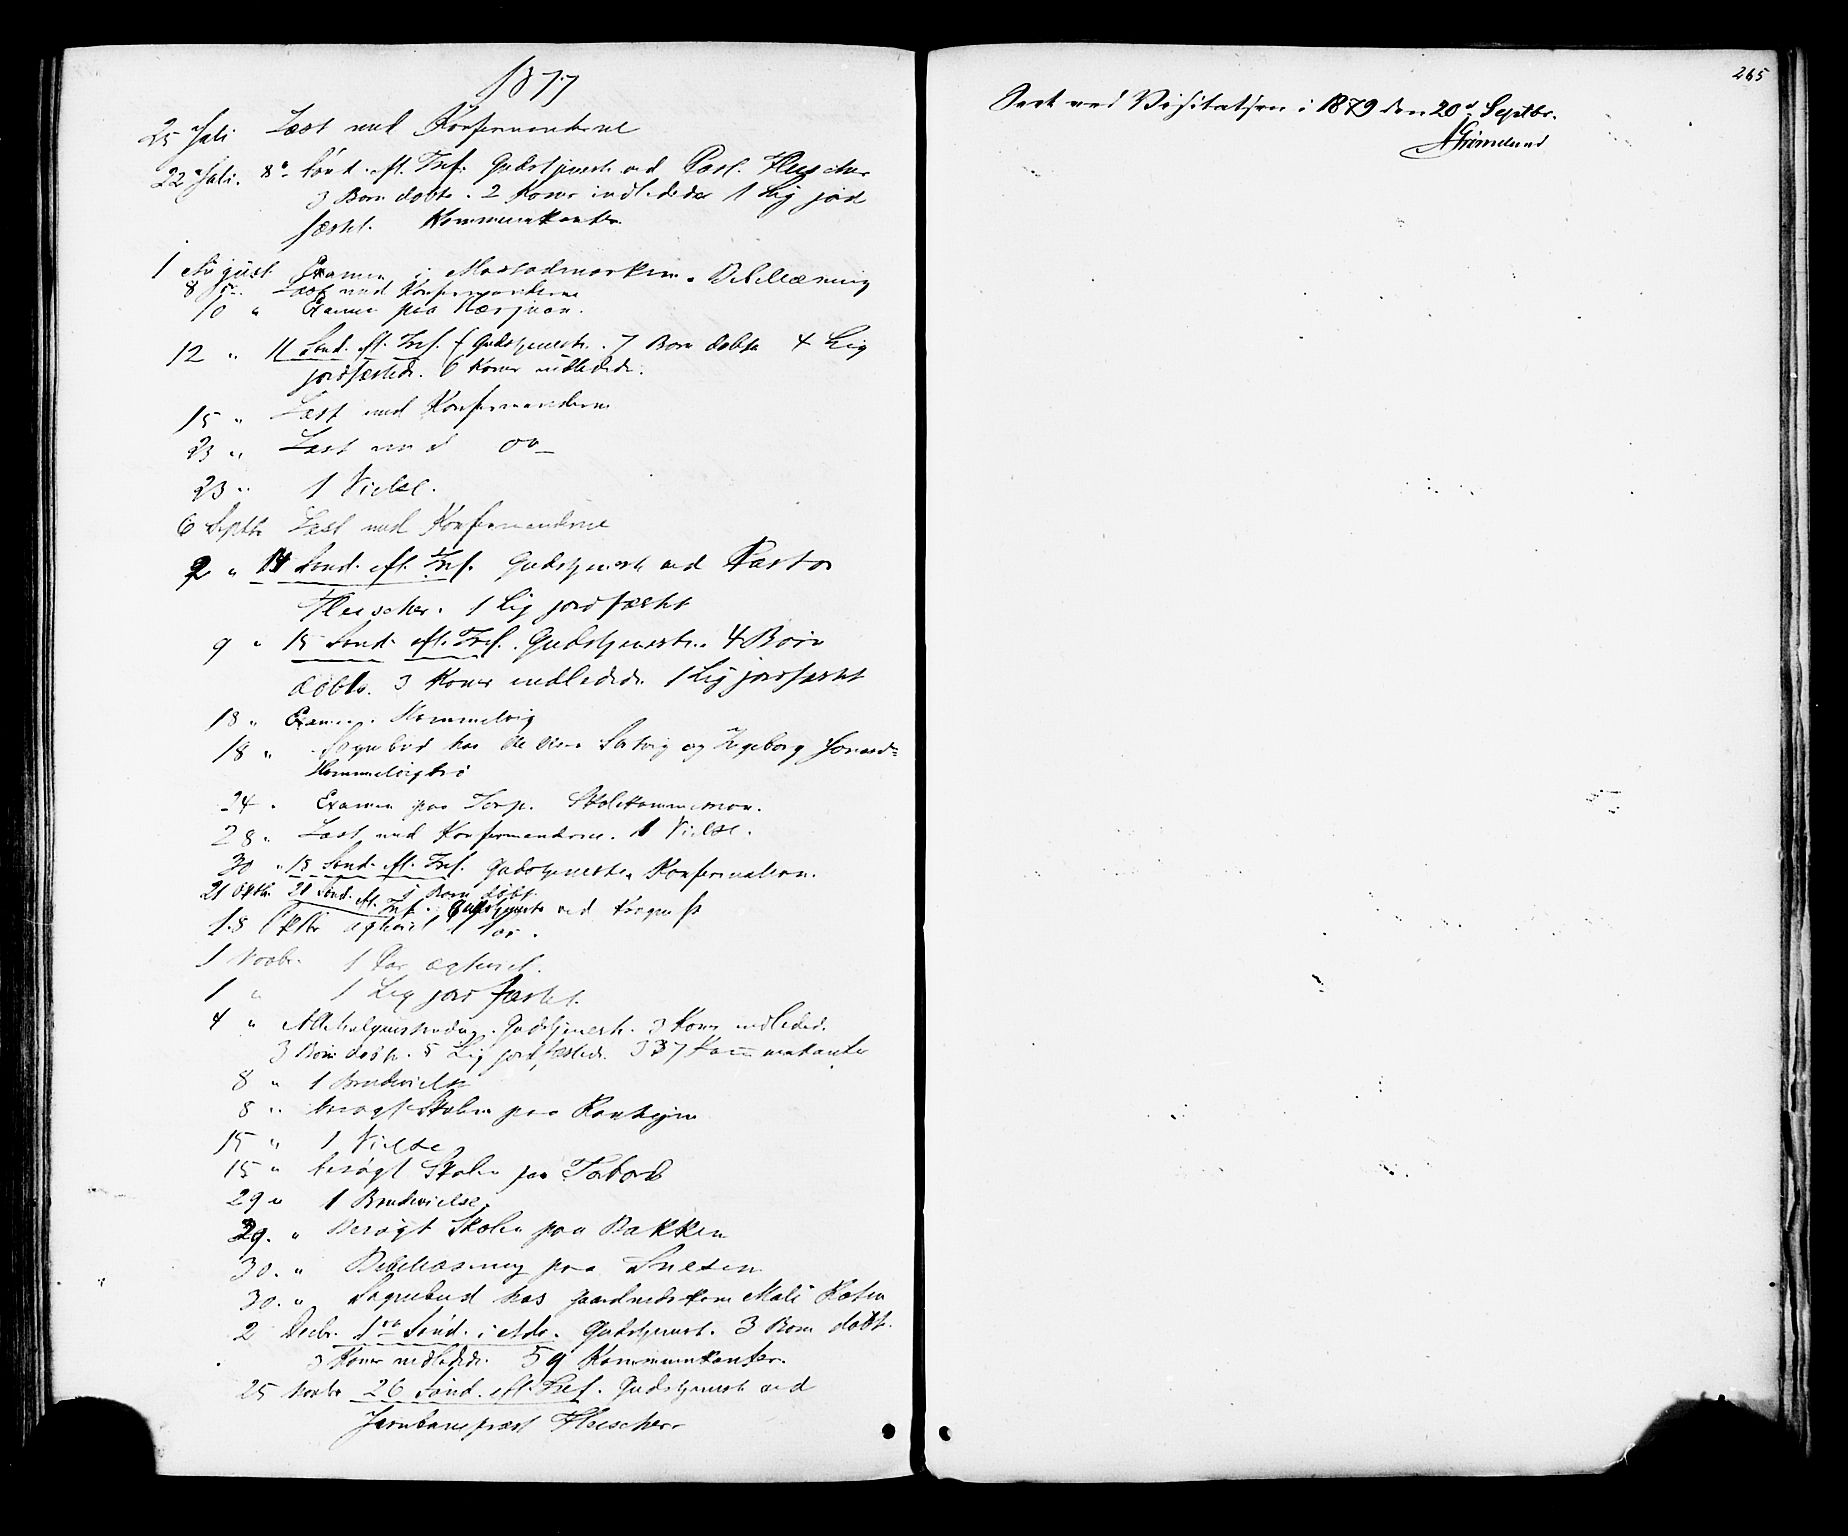 1877
25 Juli Læst med Konfirmanderne
22 Juli. 8de Sønd. eft. Tref. Gudstjeneste ved Past. Fleischer
3 Børn døbte. 2 Koner indledede 1 Lig jord
fæstet. Kommunikanter
1 August Examen i Mostadmarken. Bibellæsning
8 Læst med Konfirmanderne
10 " Examen paa
12 " 11 Sønd. eft. Tref. Gudstjeneste. 7 Børn døbte 4 Lig
jordfæstede. 6 Koner indledede.
15 " Læst med Konfirmanderne
23 " Læst med do
23 " 1 Vielse.
6 Septbr Læst med Konfirmanderne
2 " 14 Sønd. eft. Tref. Gudstjeneste ved Pastor
Fleischer. 1 Lig jordfæstet
9 " 15 Sønd. eft. Tref. Gudstjeneste. 4 Børn
døbte. 3 Koner indledede 1 Lig jordfæstet
18 " Examen i Hommelvig
18 " Sognebud hos og Ingeborg
24 " Examen paa Torp. Skolekommission.
28 " Læst med Konfirmanderne. 1 Vielse.
30 " 18 Sønd. eft. Tref. Gudstjeneste. Konfirmation.
21 Oktbr 21 Sønd. eft. Tref. Gudstjeneste ved
5 Børn døbt.
18 Oktbr ægteviet 1 Par.
1 Novbr. 1 Par ægteviet.
1 " 1 Lig jordfæstet.
4 " Allehelgenssøndag. Gudstjeneste. 3 Koner indleded.
3 Børn døbte. 5 Lig jordfæstede. 337 Kommunikanter
8 " 1 Brudevielse
8 " besøgt Skolen paa
15 " 1 Vielse
15 " besøgt Skolen paa
29 " 1 Brudevielse.
29. " Besøgt Skolen paa Bakken
30. " Bibellæsning paa
30. " Sognebud hos
2 Decbr. 1ste Sønd. i Adv. Gudstjenest. 3 Børn døbt.
3 Koner indledede. 59 Kommunikanter.
25 Novbr 26 Sønd. eft. Tref. Gudstjeneste ved
Jernbanepræst Fleischer
265
Seet ved Visitatsen i 1879 den 20d Septbr.
AGrimelund